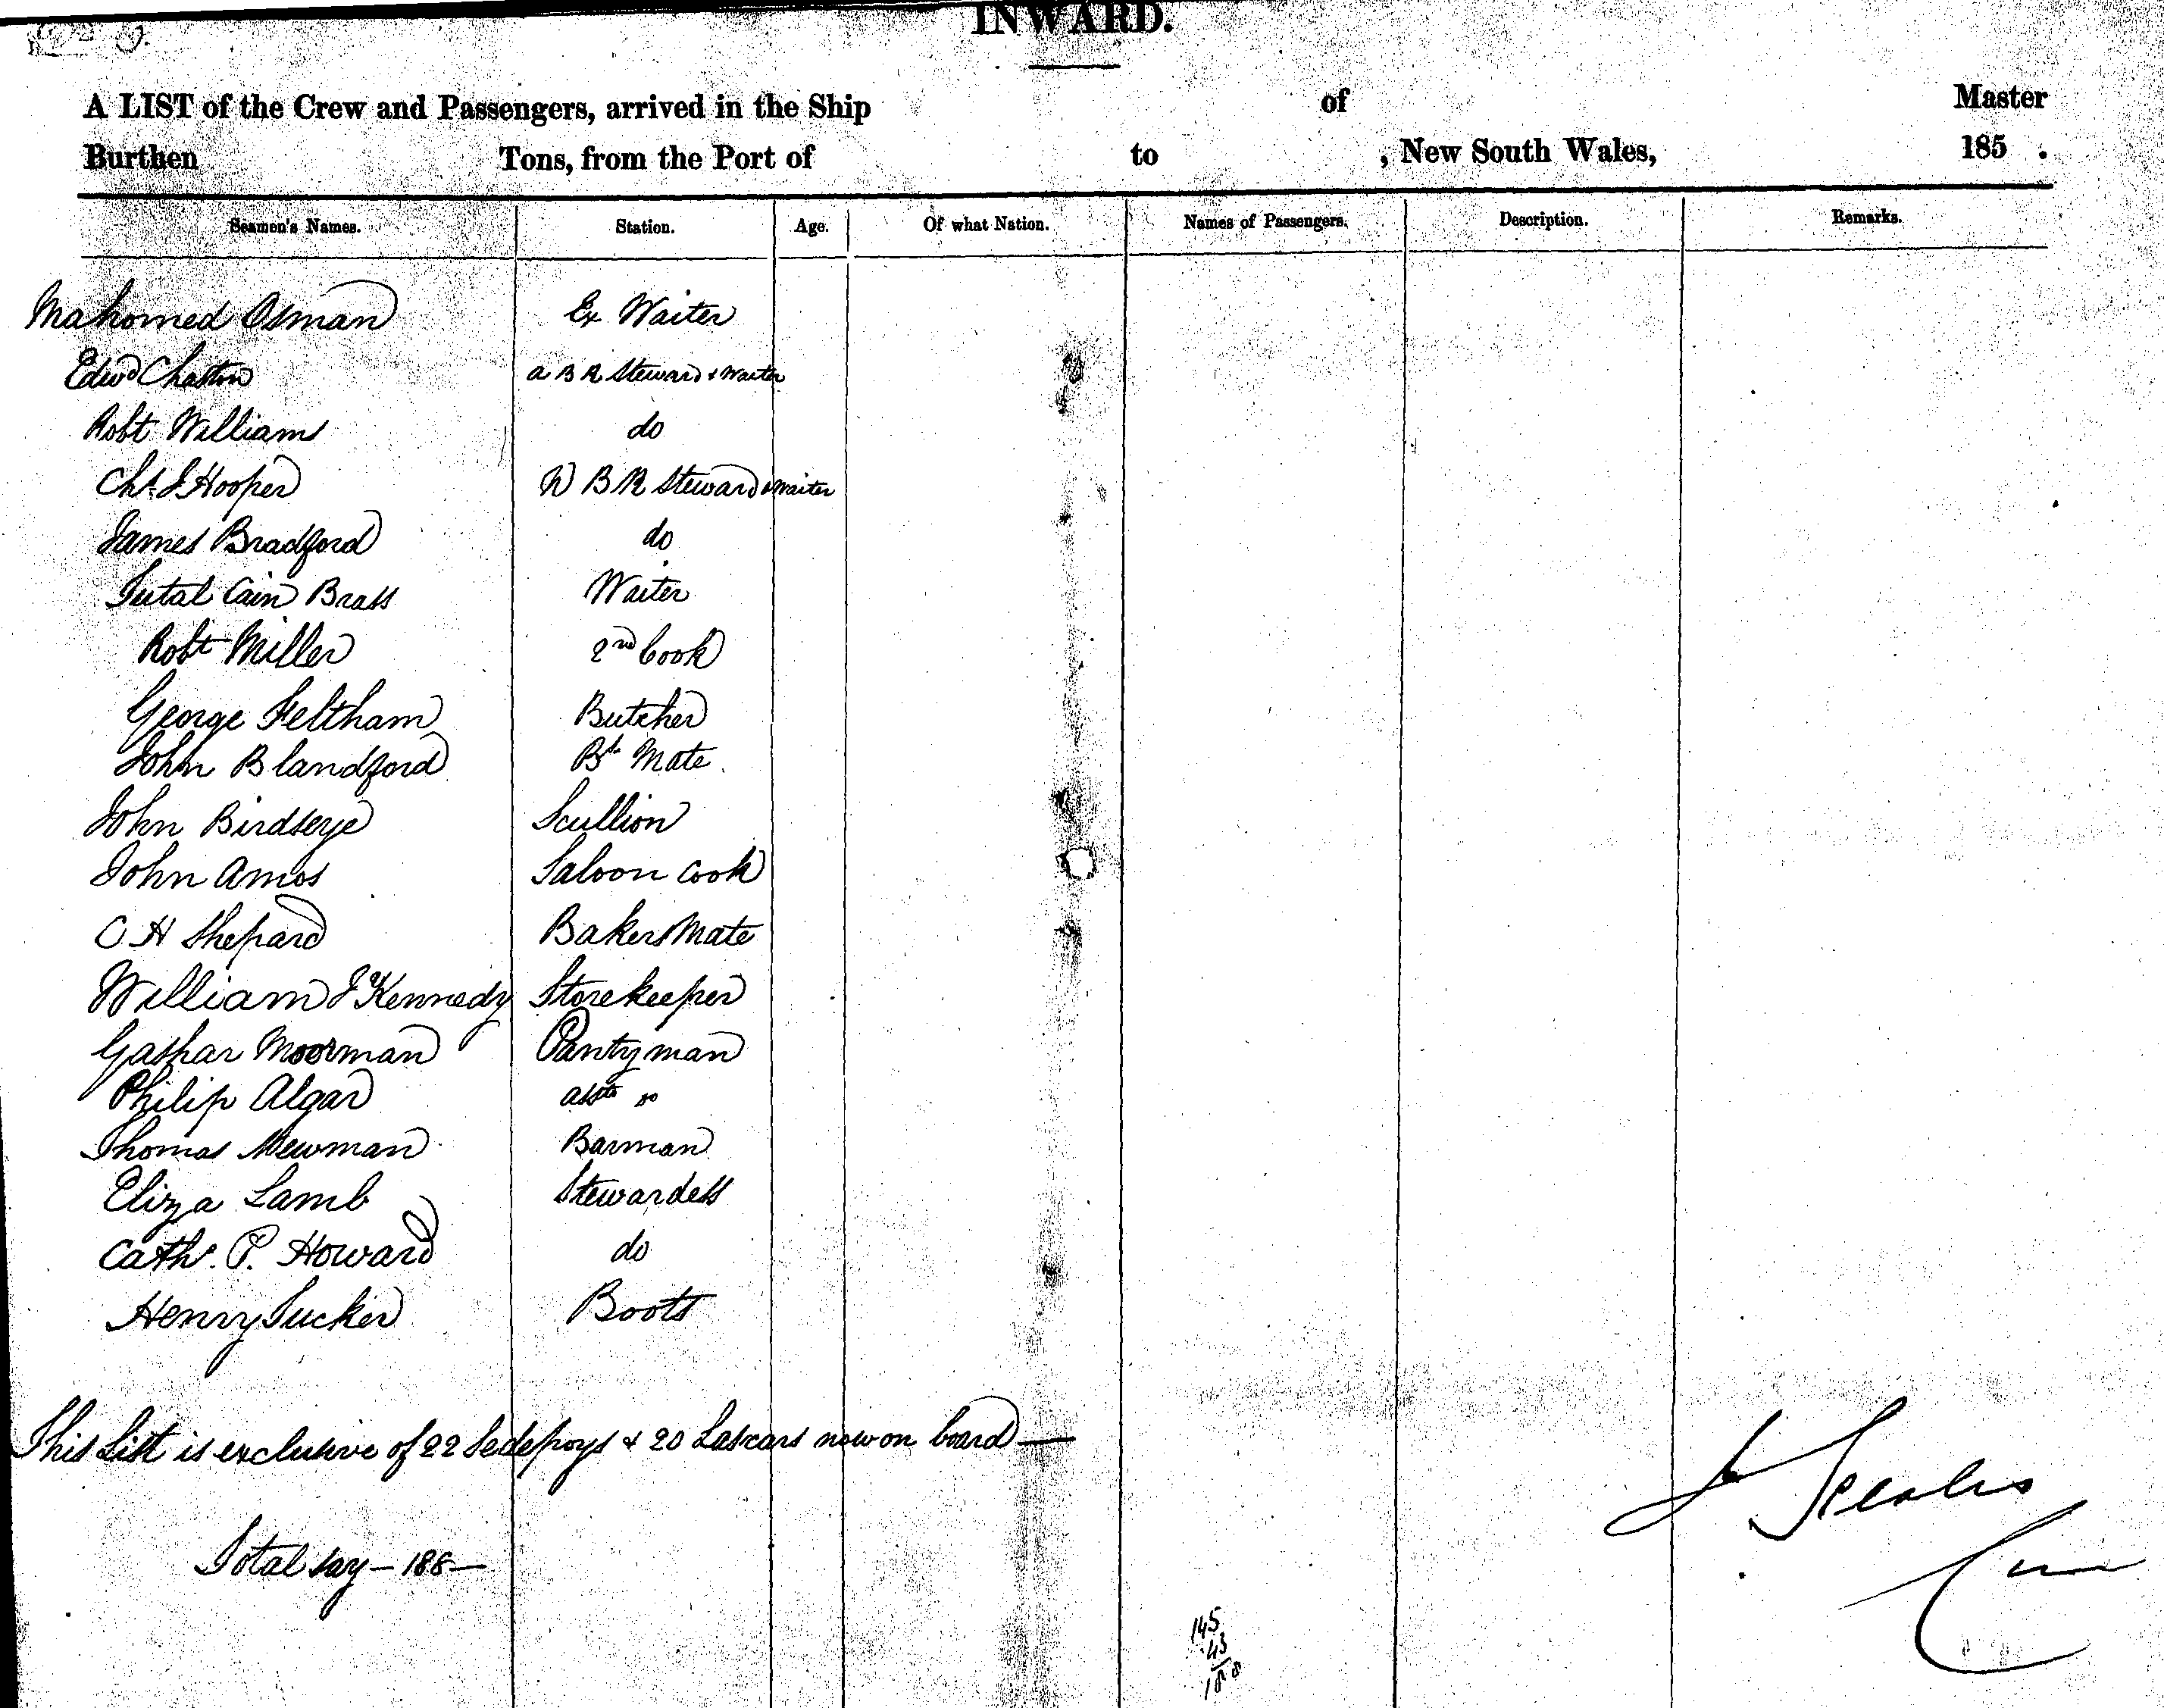 INWARD.
A LIST of the Crew and Passengers, arrived in the Ship of Master
Burthen Tons, from the Port of to , New South Wales, 185 .
Seamen's Names. Station. Age. Of what Nation. Names of Passengers. Description. Remarks.
Mahomed Osman Ex Waiter
Edwd Chaston a B R Steward & Waiter
Robt Williams do
Chs. J Hooper W B R Steward & Waiter
James Bradford do
Jutal Cain Brass Waiter
Robt Miller 2nd Cook
George Feltham Butcher
John Blandford Brs Mate
John Birdseye Scullion
John Amos Saloon Cook
C H Shepard Bakers Mate
William Kennedy Storekeeper
Gashar Moorman Pantryman
Philip Algar asst do
Thomas Newman Barman
Eliza Lamb Stewardess
Cath. P. Howard do
Henry Tucker Boots
This List is exclusive of 22 Sedepoys & 20 Lascars now on board —
Total say — 188 —
145
43
188